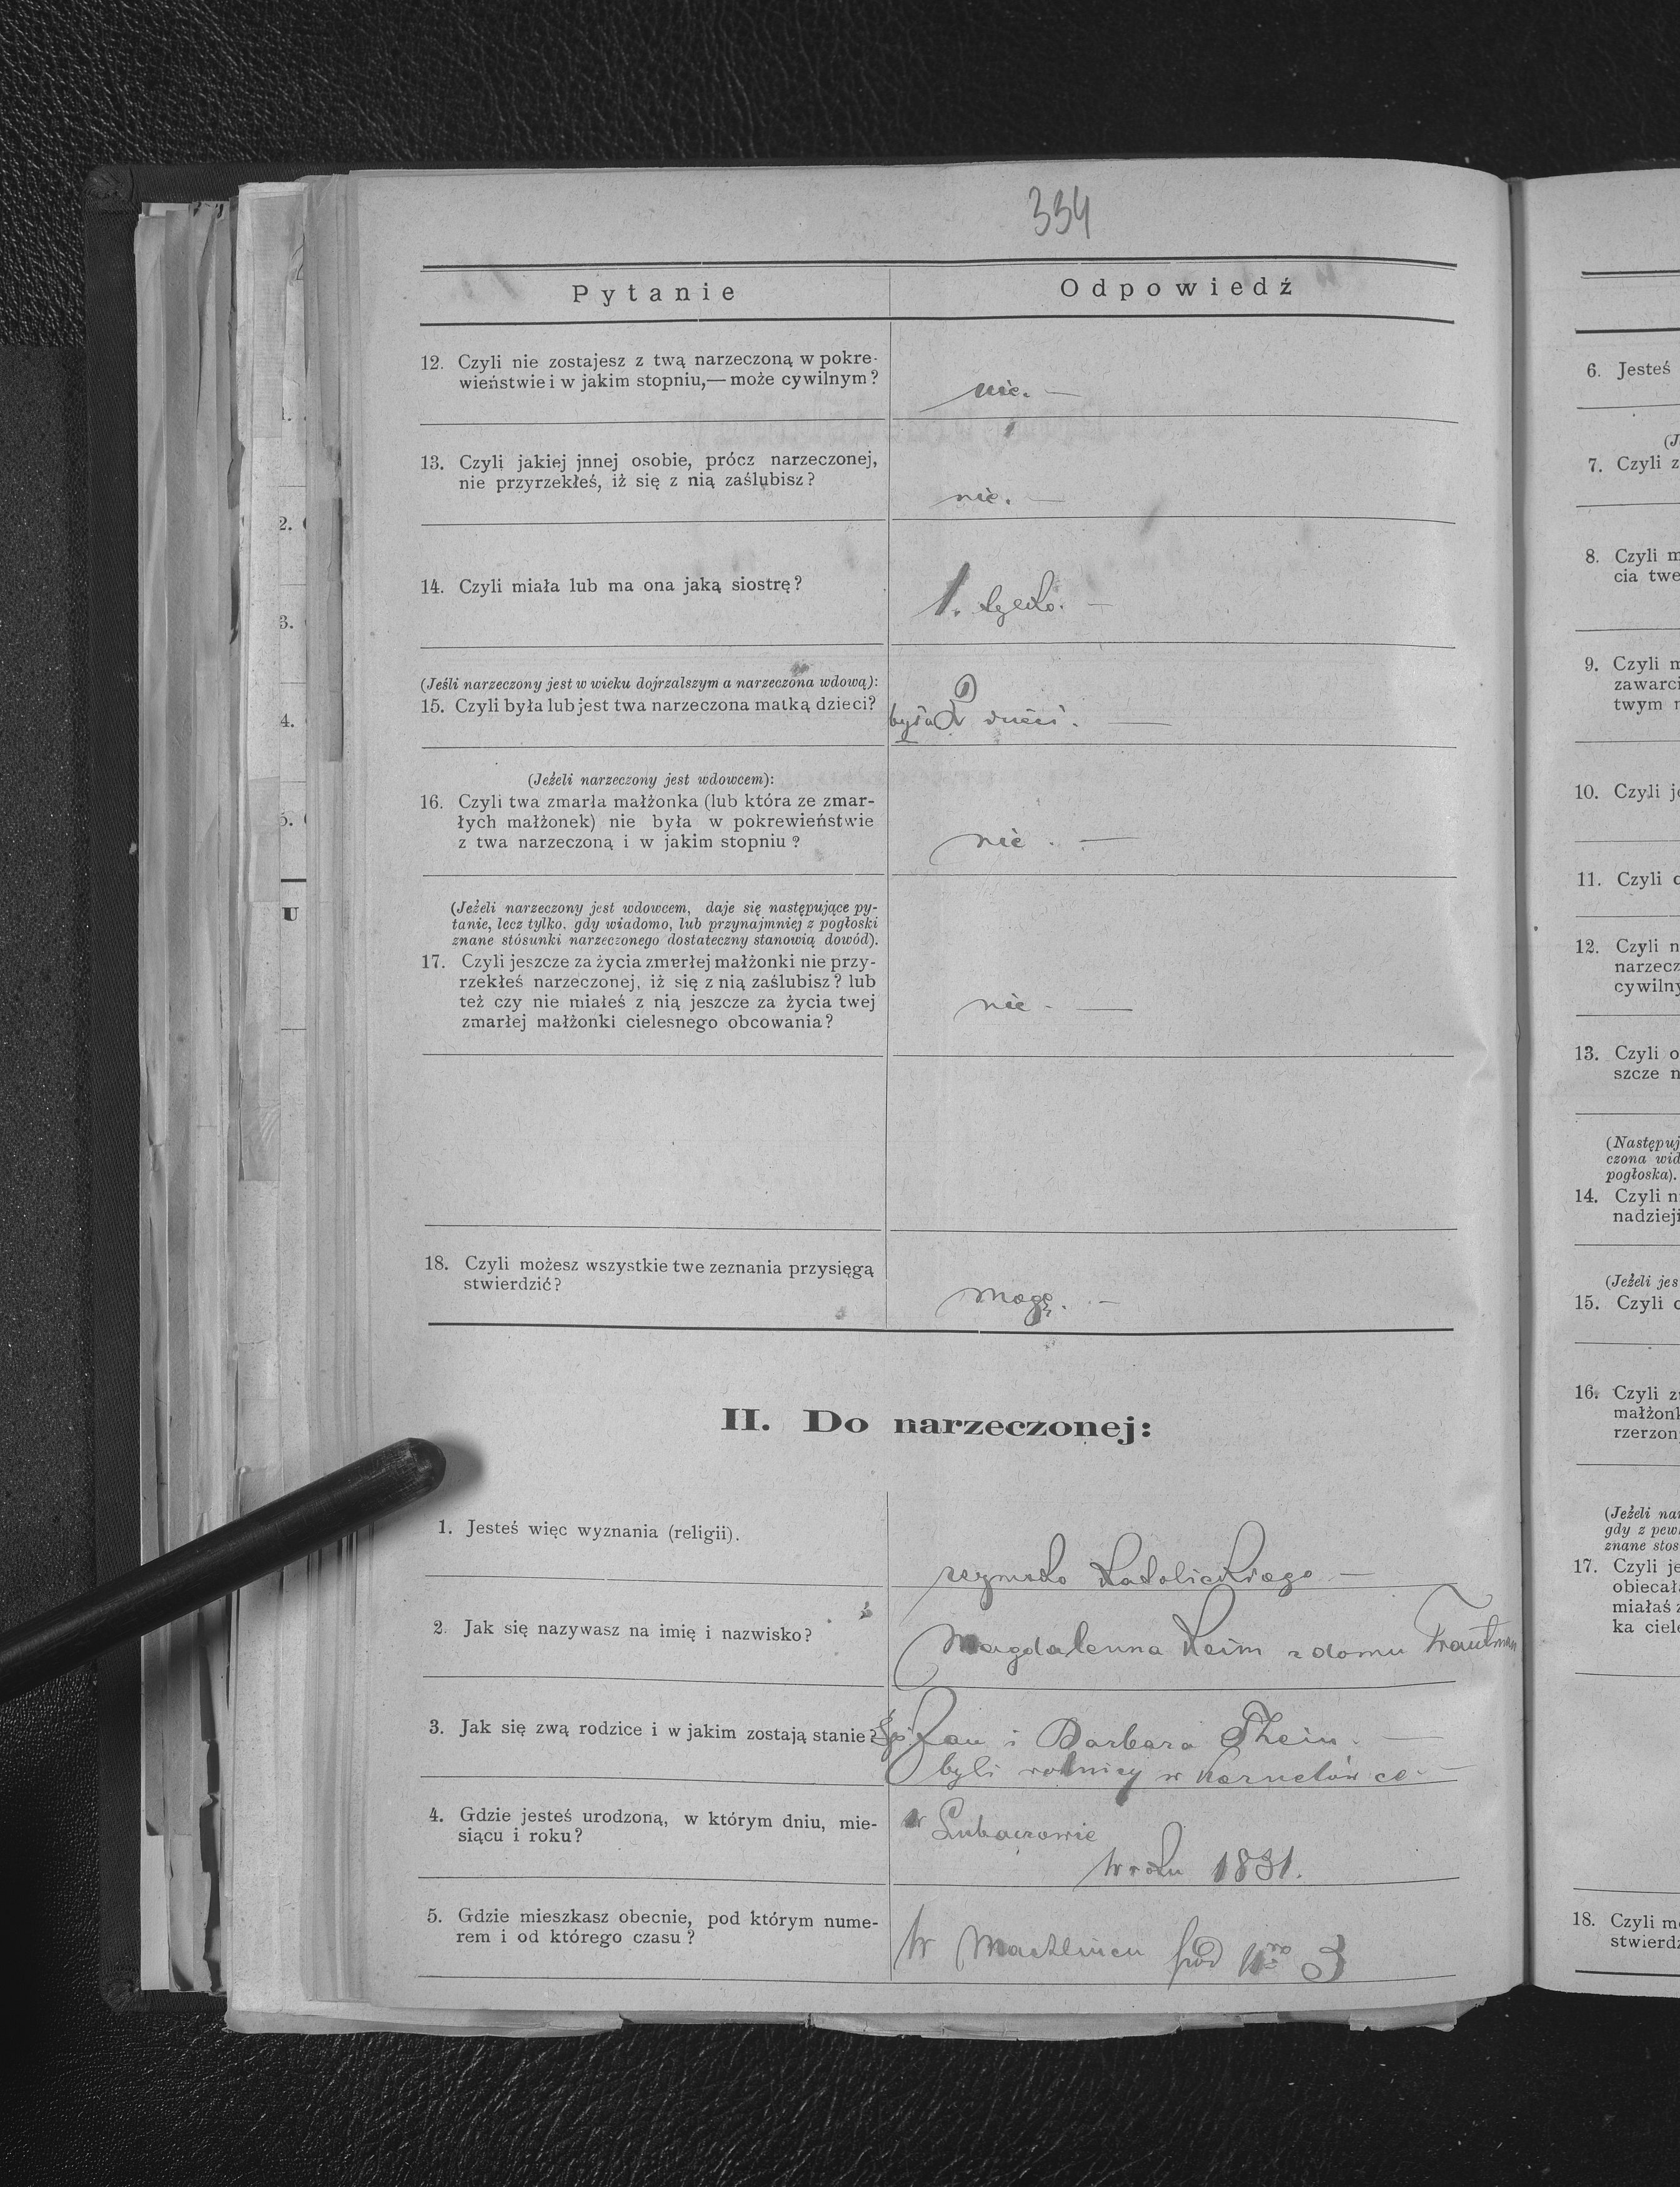 334
Pytanie
Odpowiedź
12. Czyli nie zostajesz z twą narzeczoną w pokre-
wieństwie i w jakim stopniu,— może cywilnym?
nie. —
13. Czyli jakiej jnnej osobie, prócz narzeczonej,
nie przyrzekłeś, iż się z nią zaślubisz?
nie. —
14. Czyli miała lub ma ona jaką siostrę?
1. tylko. —
(Jeśli narzeczony jest w wieku dojrzalszym a narzeczona wdową):
15. Czyli była lub jest twa narzeczona matką dzieci?
była dzieci. —
(Jeżeli narzeczony jest wdowcem):
16. Czyli twa zmarła małżonka (lub która ze zmar-
łych małżonek) nie była w pokrewieństwie
z twa narzeczoną i w jakim stopniu?
nie. —
(Jeżeli narzeczony jest wdowcem, daje się następujące py-
tanie, lecz tylko. gdy wiadomo, lub przynajmniej z pogłoski
znane stósunki narzeczonego dostateczny stanowią dowód).
17. Czyli jeszcze za życia zmerłej małżonki nie przy-
rzekłeś narzeczonej, iż się z nią zaślubisz? lub
też czy nie miałeś z nią jeszcze za życia twej
zmarłej małżonki cielesnego obcowania?
nie. —
18. Czyli możesz wszystkie twe zeznania przysięgą
stwierdzić?
mogę. —
II. Do narzeczonej:
1. Jesteś więc wyznania (religii).
rzymsko katolickiego —
2. Jak się nazywasz na imię i nazwisko?
Magdalenna Keim z domu Trautman
3. Jak się zwą rodzice i w jakim zostają stanie?
Jan i Barbara Thein. —
byli rolnicy w
4. Gdzie jesteś urodzoną, w którym dniu, mie-
siącu i roku?
w Lubaczowie
w roku 1831.
5. Gdzie mieszkasz obecnie, pod którym nume-
rem i od którego czasu?
w pod Nro 3
6. Jesteś
7. Czyli z
8. Czyli m
cia twe
9. Czyli m
zawarci
twym n
10. Czyli je
11. Czyli
12. Czyli n
narzecz
cywilny
13. Czyli o
szcze n
(Następuj
czona wid
pogłoska).
14. Czyli n
nadzieji
(Jeżeli jes
15. Czyli
16. Czyli z
małżonk
rzerzon
(Jeżeli nar
gdy z pew
znane stos
17. Czyli je
obiecał
miałaś z
ka ciele
18. Czyli m
stwierdz